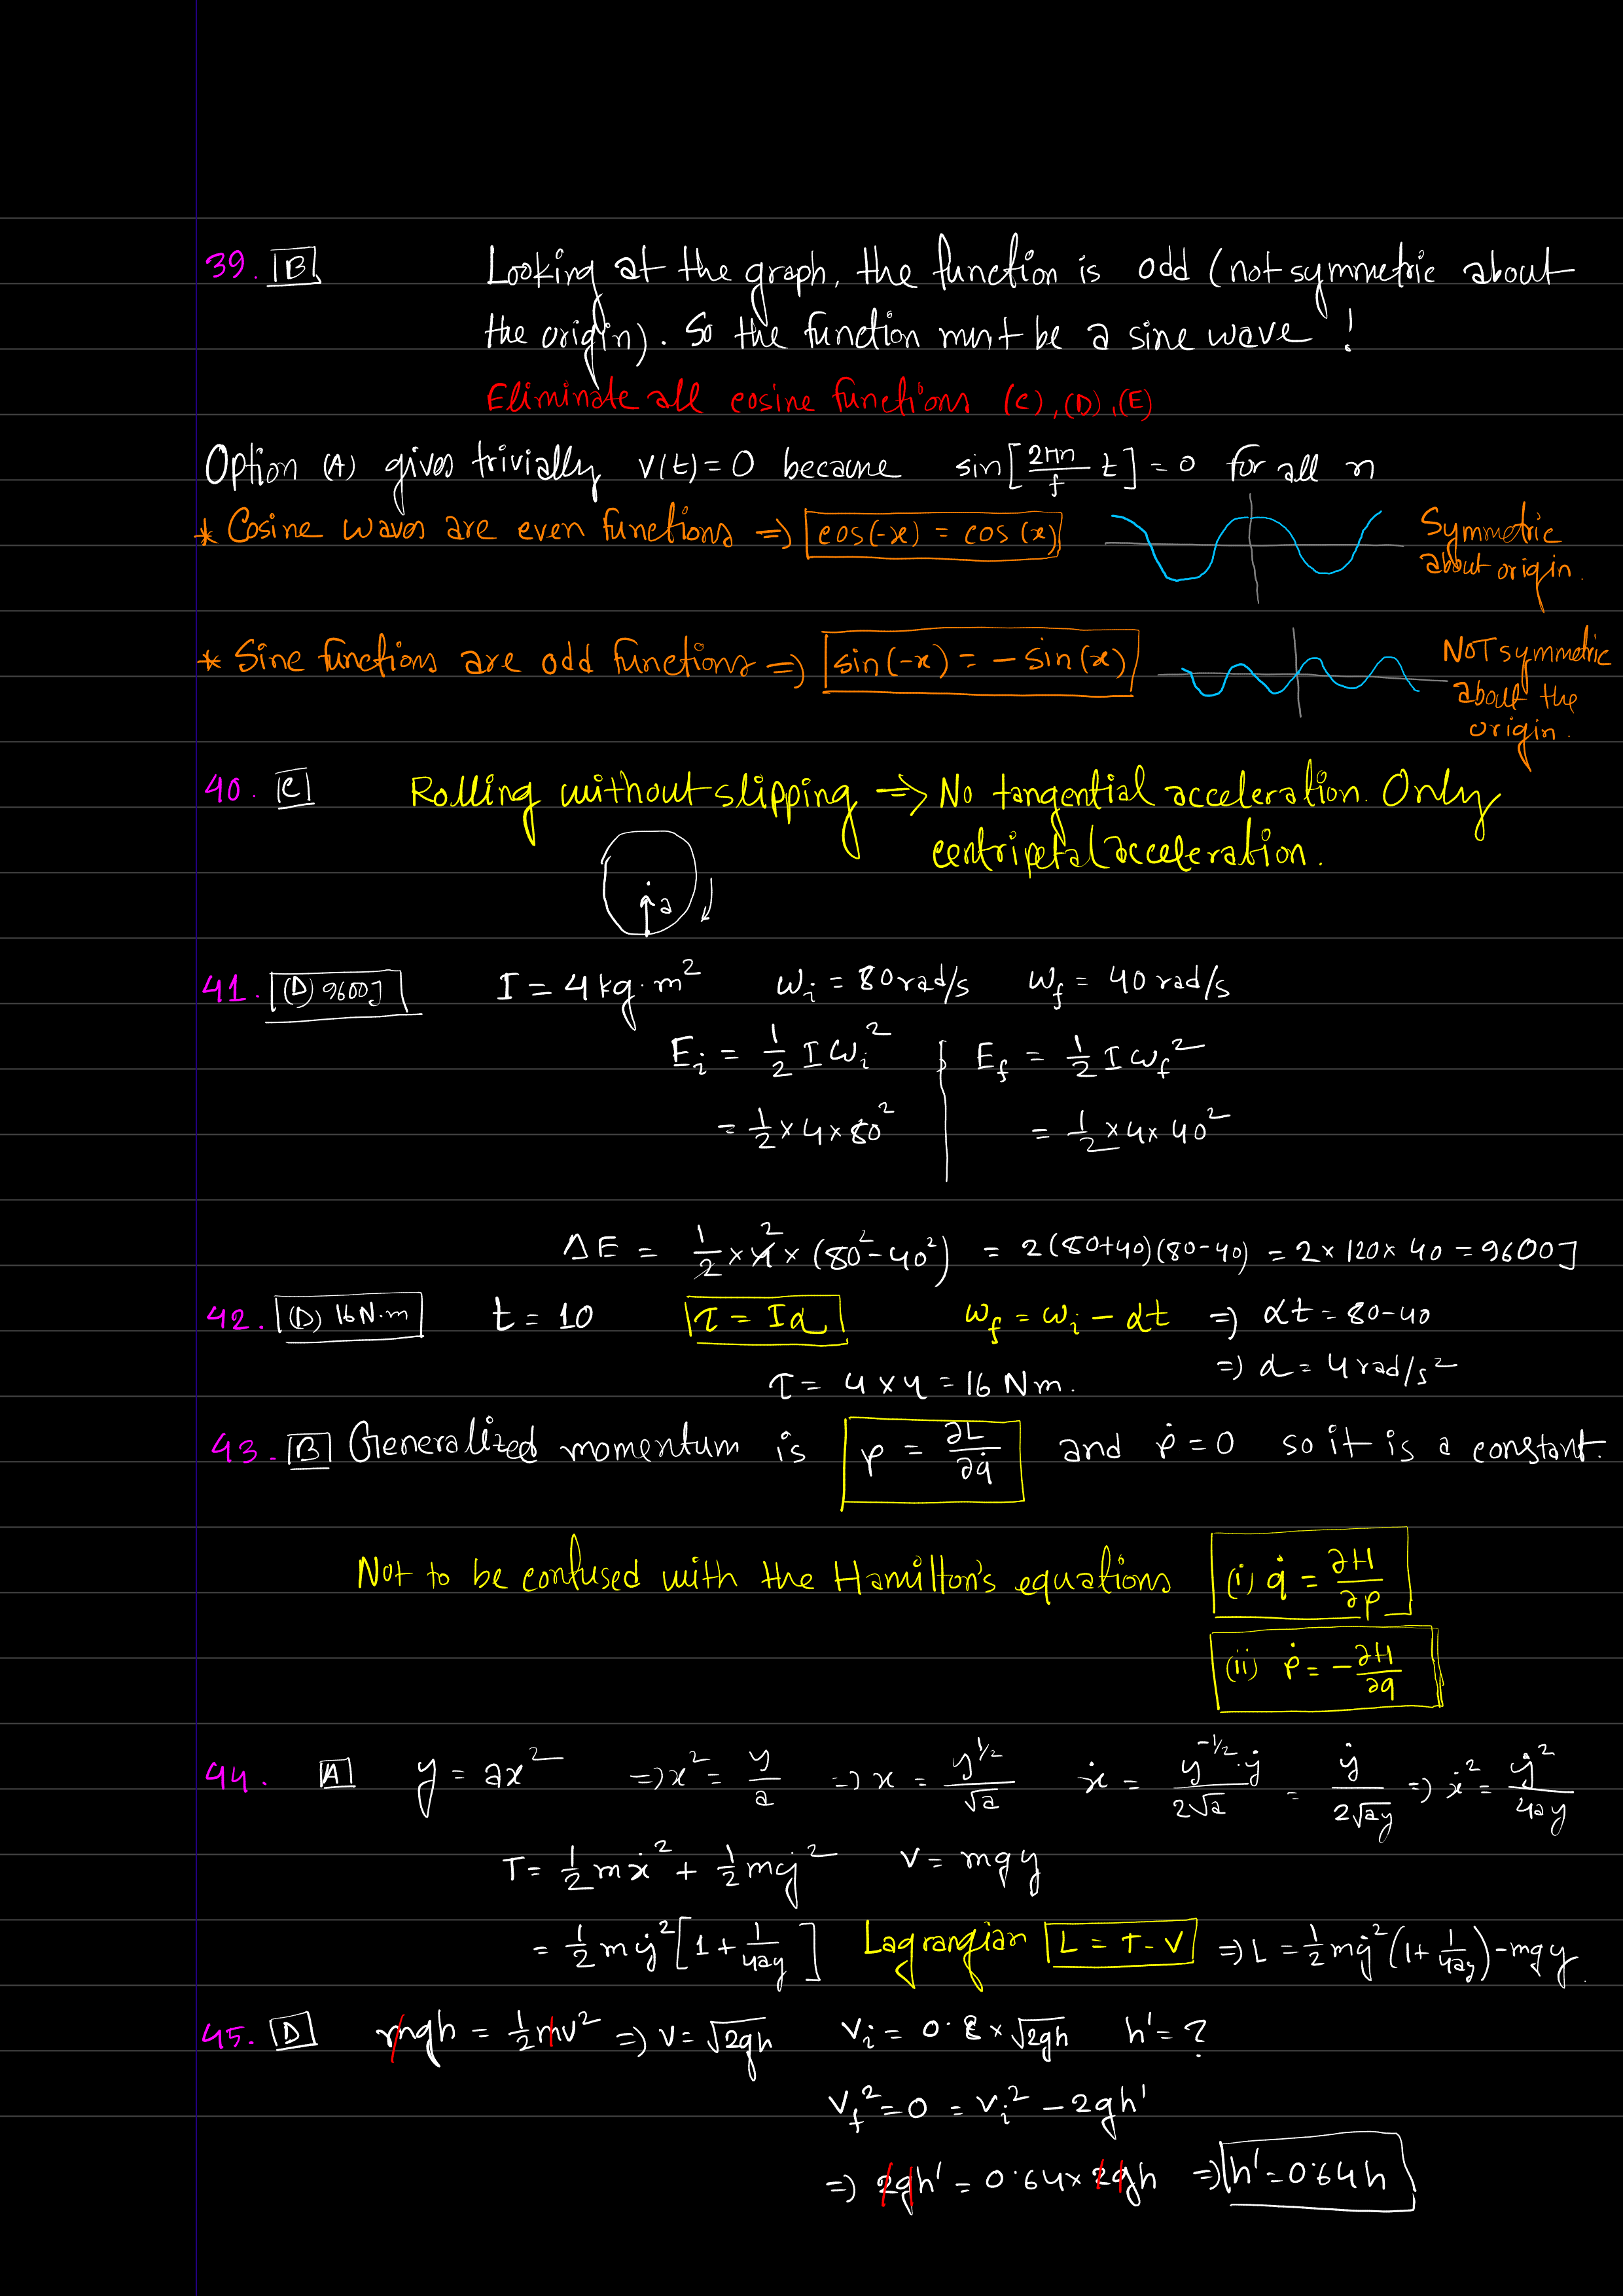 39. B Looking at the graph, the function is odd (not symmetric about
the origin). So the function must be a sine wave !
Eliminate all cosine functions (C), (D), (E)
Option (A) gives trivially V(t) = 0 because sin[2πn/f t] = 0 for all n
* Cosine waves are even functions => cos(-x) = cos(x) Symmetric
about origin.
* Sine functions are odd functions => sin(-x) = - sin(x) NOT symmetric
about the
origin.
40. C Rolling without slipping → No tangential acceleration. Only
centripetal acceleration.
a
41. (D) 9600J I = 4 kg.m² ω_i = 80 rad/s ω_f = 40 rad/s
E_i = 1/2 I ω_i² E_f = 1/2 I ω_f²
= 1/2 × 4 × 80² = 1/2 × 4 × 40²
ΔE = 1/2 × 4 2 × (80² - 40²) = 2(80+40)(80-40) = 2 × 120 × 40 = 9600J
42. (D) 16 N.m t = 10 τ = Iα ω_f = ω_i - αt => αt = 80-40
τ = 4 × 4 = 16 Nm. => α = 4 rad/s²
43. B Generalized momentum is p = ∂L/∂q̇ and ṗ = 0 so it is a constant.
Not to be confused with the Hamilton's equations (i) q̇ = ∂H/∂p
(ii) ṗ = -∂H/∂q
44. A y = ax² => x² = y/a => x = y^1/2/√a ẋ = y^-1/2.ẏ/2√a = ẏ/2√ay => ẋ² = ẏ²/4ay
T = 1/2 mẋ² + 1/2 mẏ² V = mgy
= 1/2 mẏ² [1 + 1/4ay] Lagrangian L = T - V => L = 1/2 mẏ² (1 + 1/4ay) - mgy
45. D mgh = 1/2 mv² => v = √2gh v_i = 0.8 × √2gh h' = ?
v_f² = 0 = v_i² - 2gh'
=> 2gh' = 0.64 × 2gh => h' = 0.64h